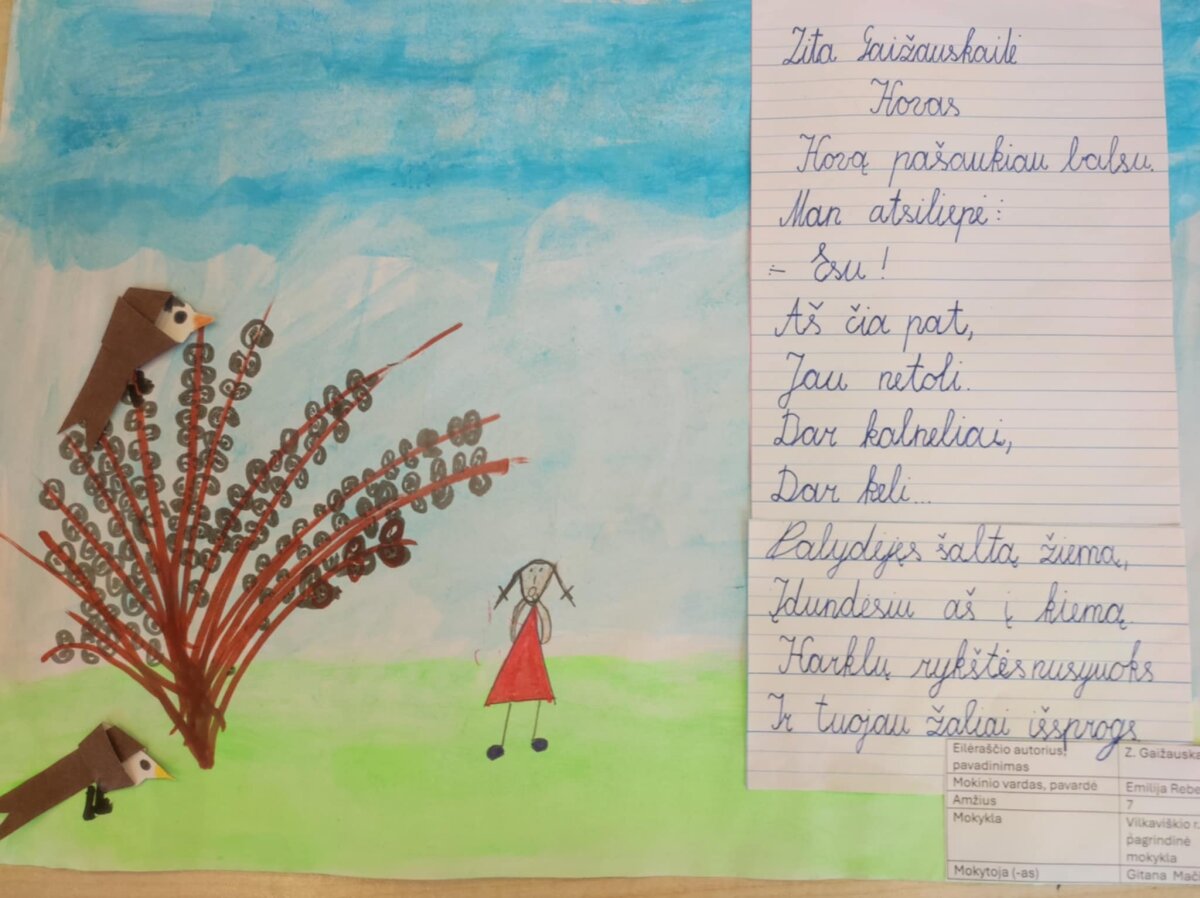 Zita Gaižauskaitė
Kovas
Kovą pašaukiau balsu.
Man atsiliepė:
- Esu!
Aš čia pat,
Jau netoli.
Dar kalneliai,
Dar keli...
Palydėjęs šaltą žiemą,
Įdundėsiu aš į kiemą.
Karklų rykštės nusijuoks
Ir tuojau žaliai išsprogs
Eilėraščio autorius, Z. Gaižauska
pavadinimas
Mokinio vardas, pavardė Emilija Rebe
Amžius 7
Mokykla Vilkaviškio r.
pagrindinė
mokykla
Mokytoja (-as) Gitana Mači